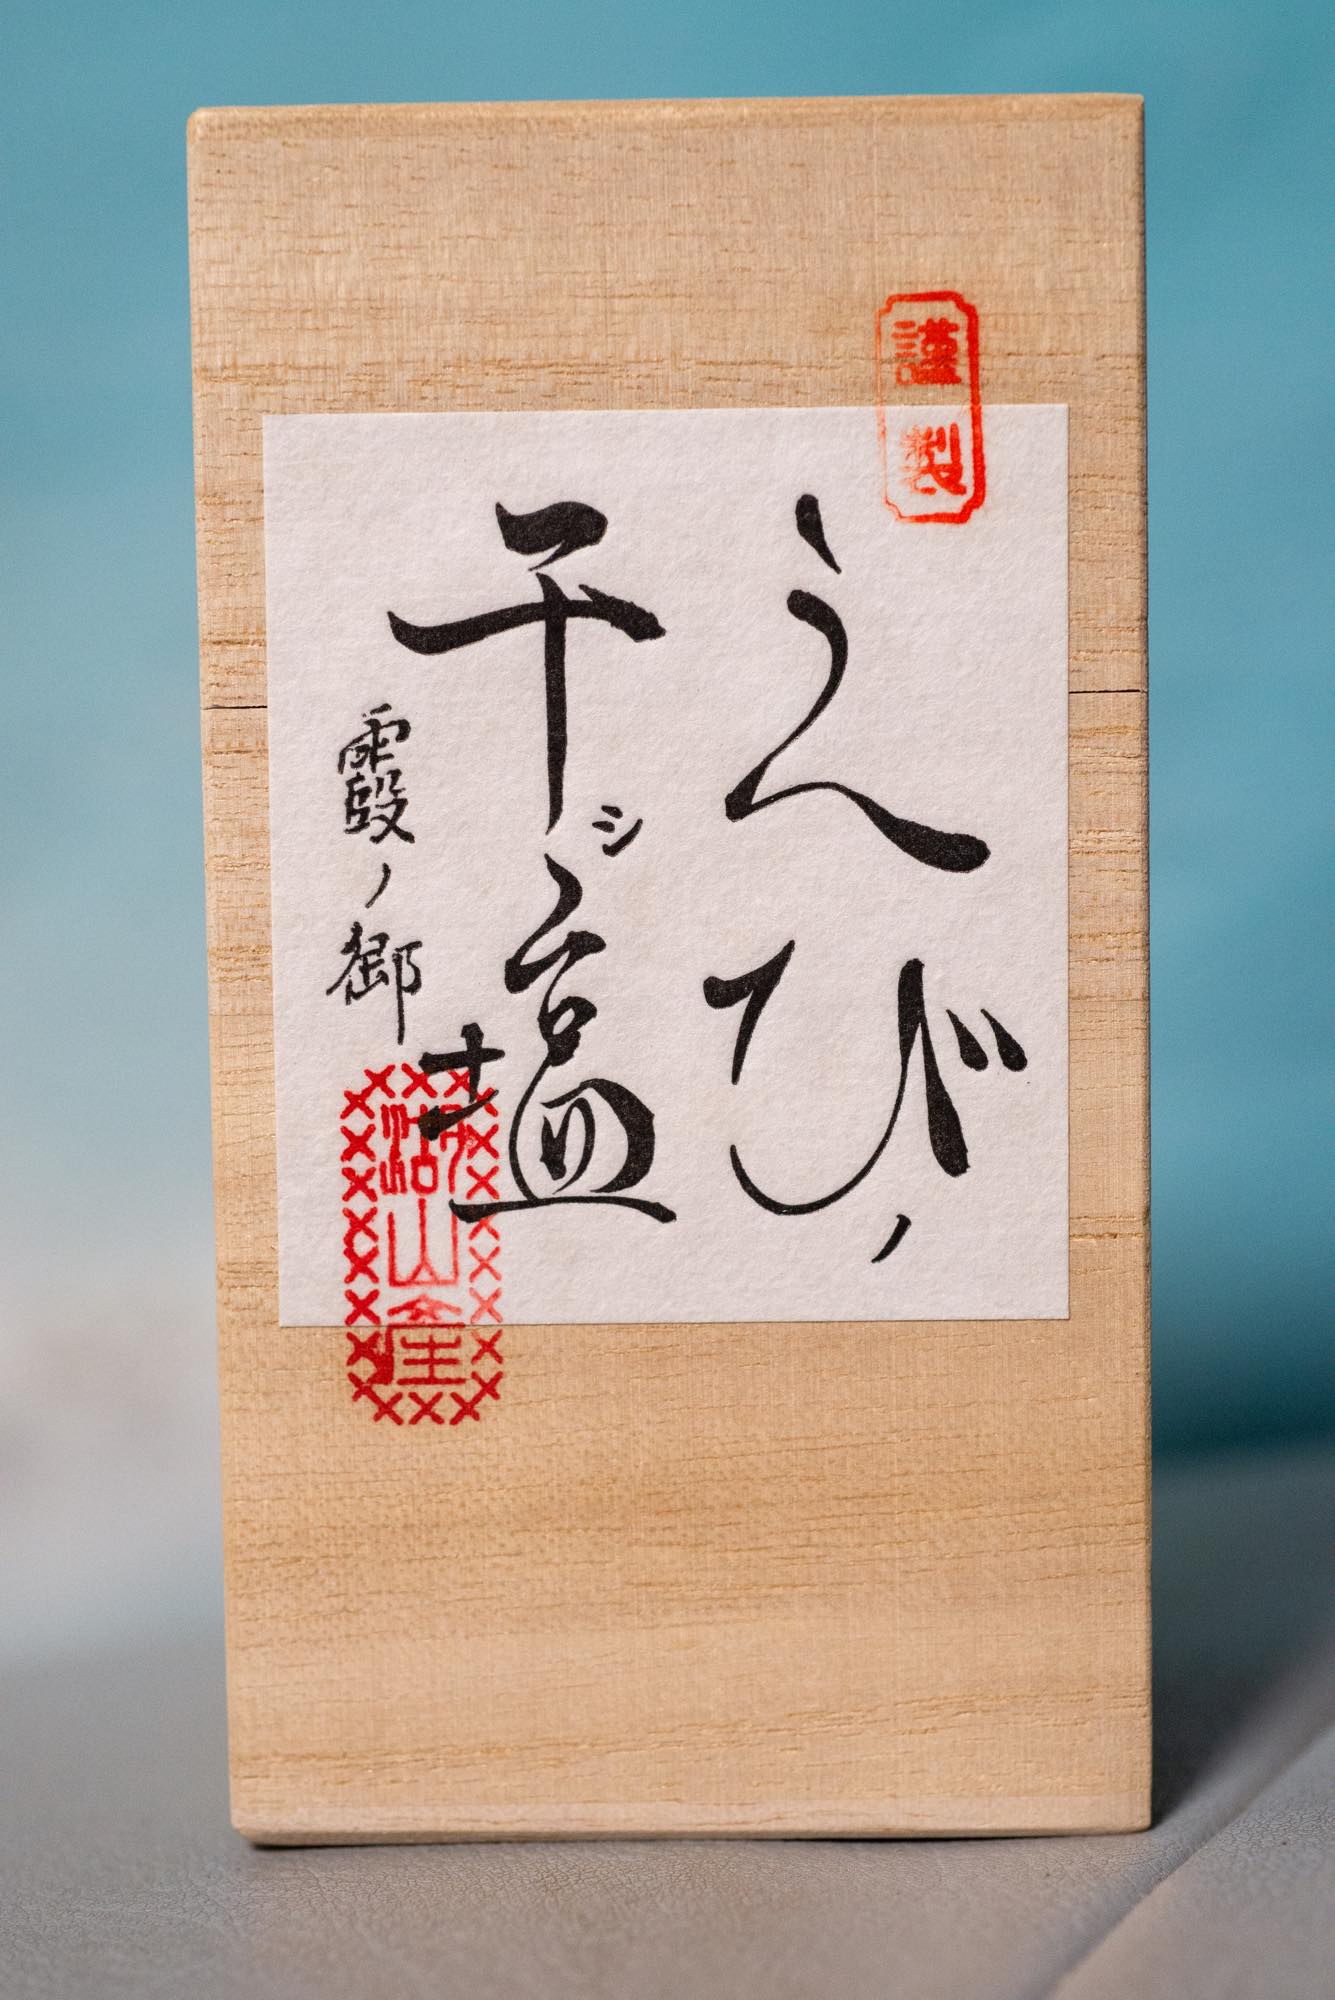 謹製
えび
干シ塩
霞ノ郷
湖山産